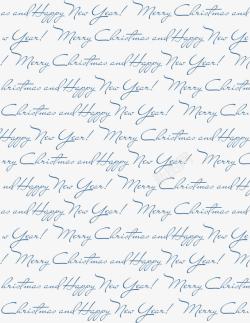 and Happy New Year! Merry Christmas
w Year! Merry Christmas and Happy Ne
! Merry Christmas and Happy New Year!
hristmas and Happy New Year! Merry C
Christmas and Happy New Year! Merry
Happy New Year! Merry Christmas and
rry Christmas and Happy New Year! Me
nd Happy New Year! Merry Christmas a
as and Happy New Year! Merry Christm
w Year! Merry Christmas and Happy Ne
! Merry Christmas and Happy New Year!
hristmas and Happy New Year! Merry C
Christmas and Happy New Year! Merry